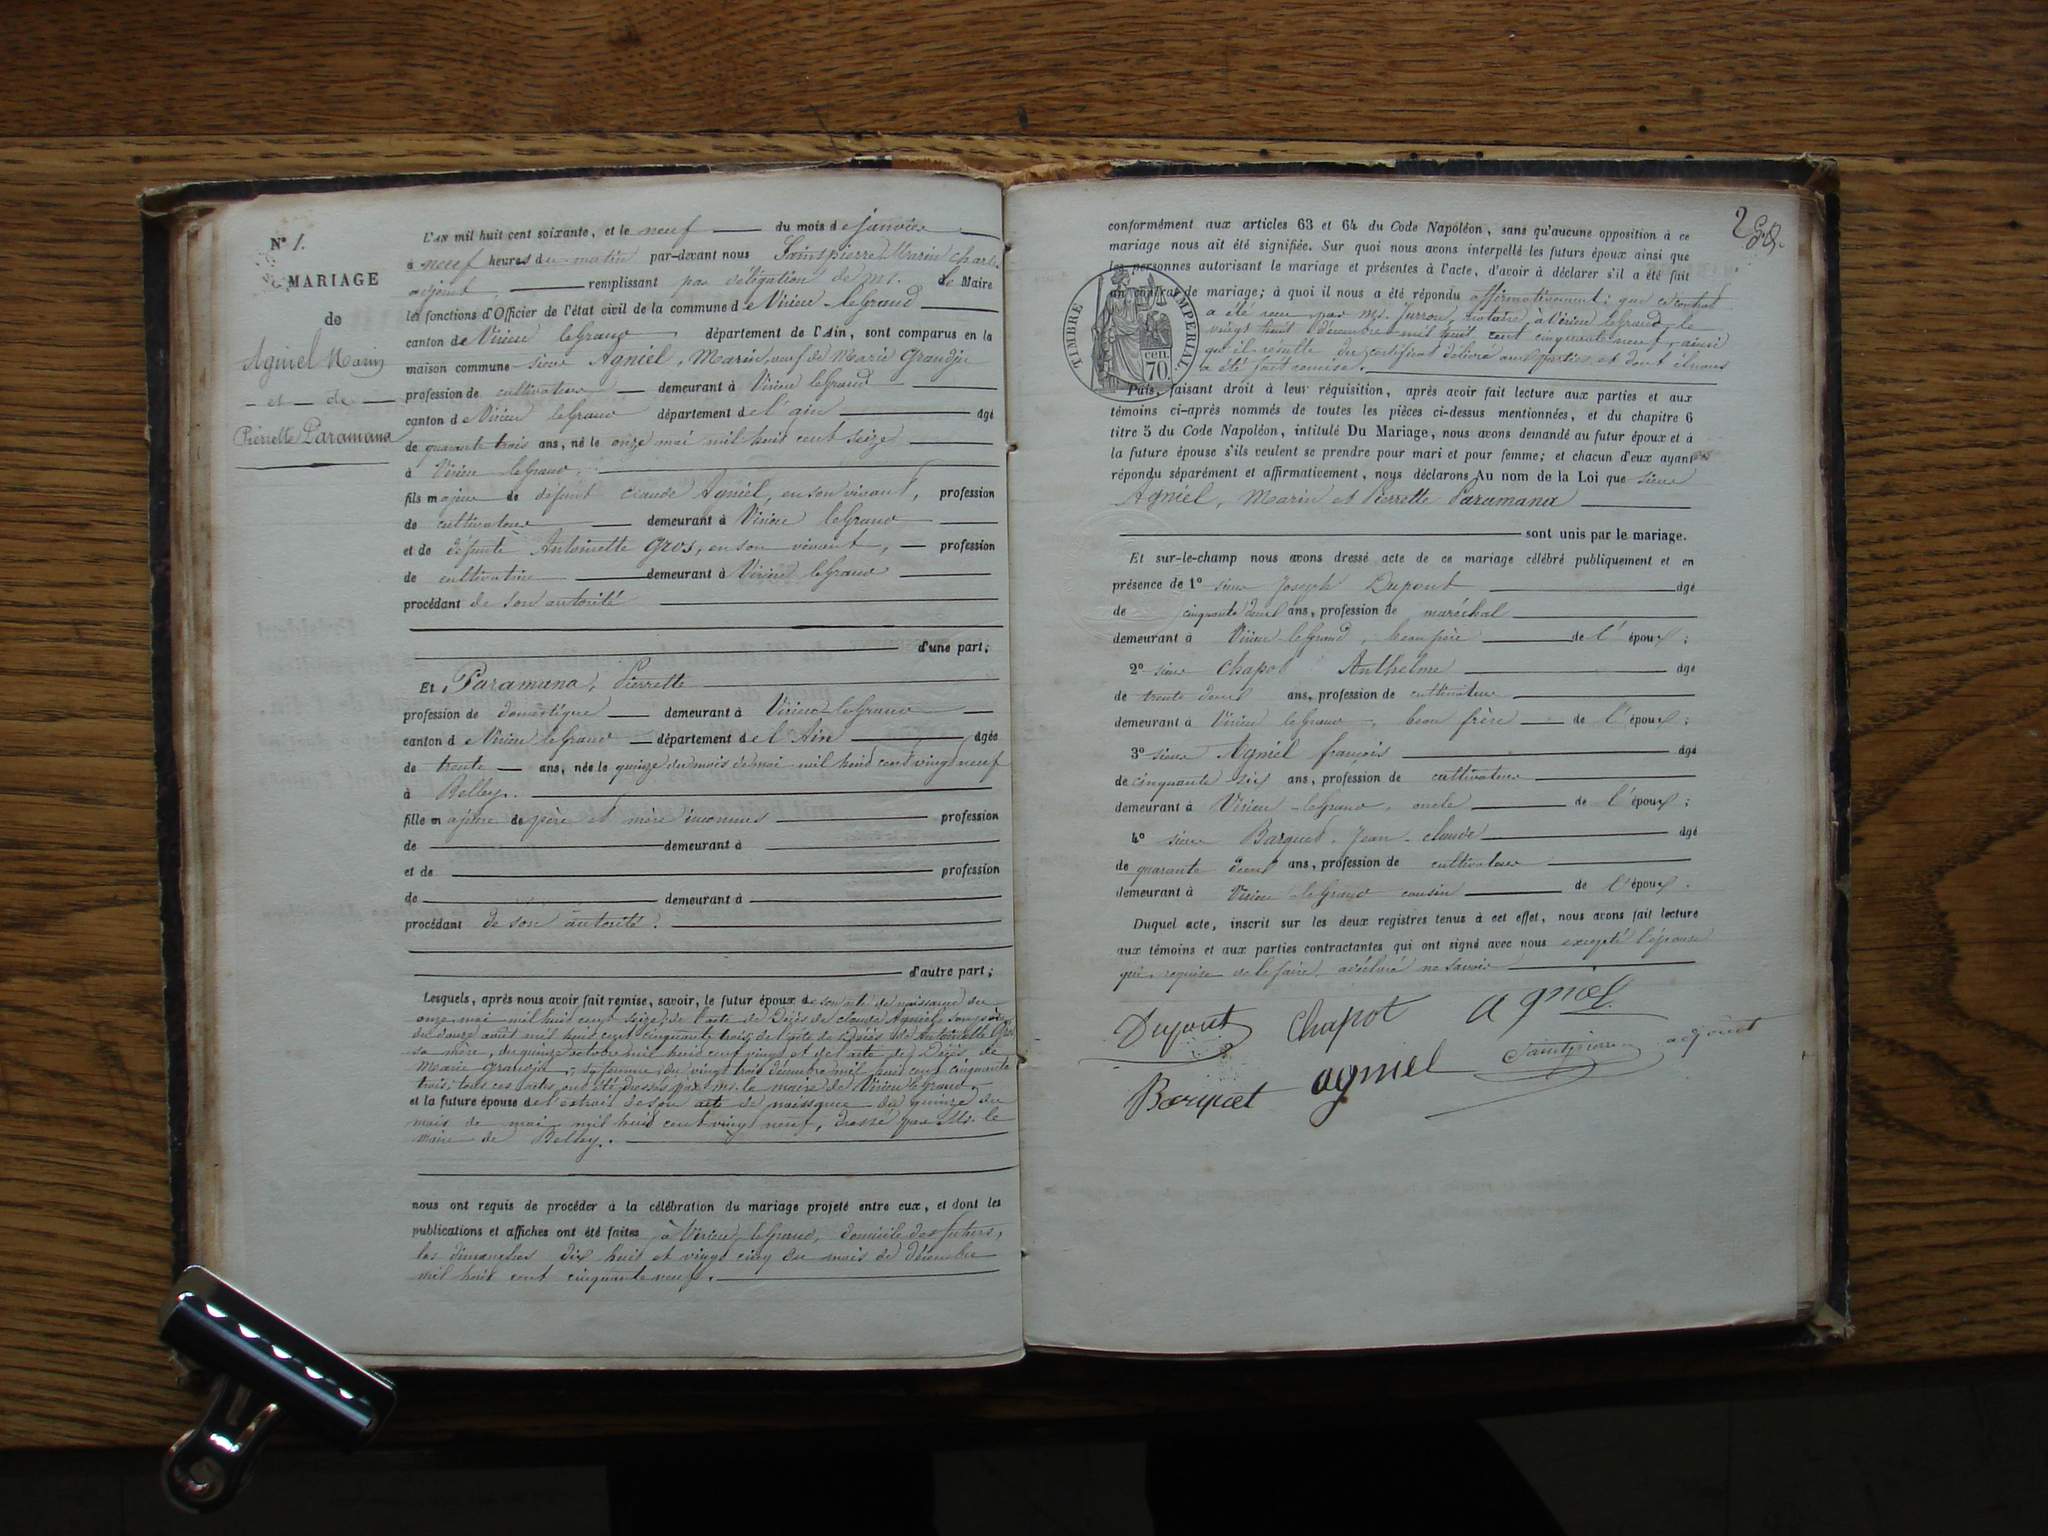 N° 1.
MARIAGE
de
Agniel Marin
et de
Pierrette Paramana
L'AN mil huit cent soixante, et le neuf du mois de janvier
à neuf heures du matin par-devant nous Saintpierre Marin Charl.
adjoint remplissant par délégation de Mr. le Maire
les fonctions d'Officier de l'état civil de la commune de Virieu leGrand
canton de Virieu leGrand département de l'Ain, sont comparus en la
maison commune sieur Agniel, Marin, veuf de Marie Grandju
profession de cultivateur demeurant à Virieu leGrand
canton de Virieu leGrand département de l'ain âgé
de quarante trois ans, né le onze mai mil huit cent seize
à Virieu leGrand.
fils majeur de défunt claude Agniel, en son vivant, profession
de cultivateur demeurant à Virieu leGrand
et de défunte Antoinette Gros, en son vivant, profession
de cultivatrice demeurant à Virieu leGrand
procédant de son autorité
d'une part;
Et Paramana, Pierrette
profession de domestique demeurant à Virieu leGrand
canton de Virieu leGrand département de l'Ain âgée
de trente ans, née le quinze du mois de mai mil huit cent vingt neuf
à Belley.
fille majeure de père et mère inconnus profession
de demeurant à
et de profession
de demeurant à
procédant de son autorité.
d'autre part;
Lesquels, après nous avoir fait remise, savoir, le futur époux de son acte de naissance du
onze mai mil huit cent seize, de l'acte de Décès de claude Agniel, son père
du douze août mil huit cent cinquante trois, de l'acte de Décès de Antoinette Gros
sa mère, du quinze octobre mil huit cent vingt et de l'acte de Décès de
Marie grandju, sa femme, du vingt trois décembre mil huit cent cinquante
trois; tous ces actes ont été dressés par Mr. le maire de Virieu leGrand,
et la future épouse de l'extrait de son acte de naissance du quinze du
mois de mai mil huit cent vingt neuf, dressé par Mr. le
maire de Belley.
nous ont requis de procéder à la célébration du mariage projeté entre eux, et dont les
publications et affiches ont été faites à Virieu leGrand, domicile des futurs,
les dimanches dix huit et vingt cinq du mois de décembre
mil huit cent cinquante neuf.
2
conformément aux articles 63 et 64 du Code Napoléon, sans qu'aucune opposition à ce
mariage nous ait été signifiée. Sur quoi nous avons interpellé les futurs époux ainsi que
les personnes autorisant le mariage et présentes à l'acte, d'avoir à déclarer s'il a été fait
un contrat de mariage; à quoi il nous a été répondu affirmativement; que ce contrat
a été reçu par Mr. notaire à Virieu leGrand, le
vingt huit décembre mil huit cent cinquante neuf, ainsi
qu'il résulte du certificat délivré aux parties et dont il nous
a été fait remise.
TIMBRE IMPERIAL
70 cen.
Puis, faisant droit à leur réquisition, après avoir fait lecture aux parties et aux
témoins ci-après nommés de toutes les pièces ci-dessus mentionnées, et du chapitre 6
titre 5 du Code Napoléon, intitulé Du Mariage, nous avons demandé au futur époux et à
la future épouse s'ils veulent se prendre pour mari et pour femme; et chacun d'eux ayant
répondu séparément et affirmativement, nous déclarons Au nom de la Loi que sieur
Agniel, Marin et Pierrette Paramana
sont unis par le mariage.
Et sur-le-champ nous avons dressé acte de ce mariage célébré publiquement et en
présence de 1° sieur Joseph Dupont âgé
de cinquante deux ans, profession de maréchal
demeurant à Virieu leGrand, beau père de l'époux;
2° sieur Chapot Anthelme âgé
de trente deux ans, profession de cultivateur
demeurant à Virieu leGrand, beau frère de l'époux;
3° sieur Agniel françois âgé
de cinquante six ans, profession de cultivateur
demeurant à Virieu leGrand, oncle de l'époux;
4° sieur Barquet, Jean-claude âgé
de quarante deux ans, profession de cultivateur
demeurant à Virieu leGrand cousin de l'époux.
Duquel acte, inscrit sur les deux registres tenus à cet effet, nous avons fait lecture
aux témoins et aux parties contractantes qui ont signé avec nous excepté l'épouse
qui requise de le faire a déclaré ne savoir
Dupont Chapot agniel
Barquet agniel Saintpierre adjoint